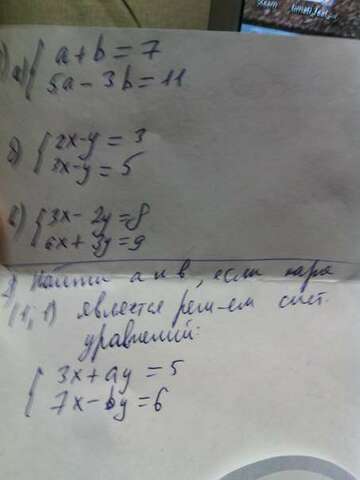 а) { a + b = 7
5a - 3b = 11
б) { 2x - y = 3
3x - y = 5
в) { 3x - 2y = 8
6x + 3y = 9
2) Найти а и в, если пара
(1; 1) является реш-ем сист.
уравнений:
{ 3x + ay = 5
7x - by = 6